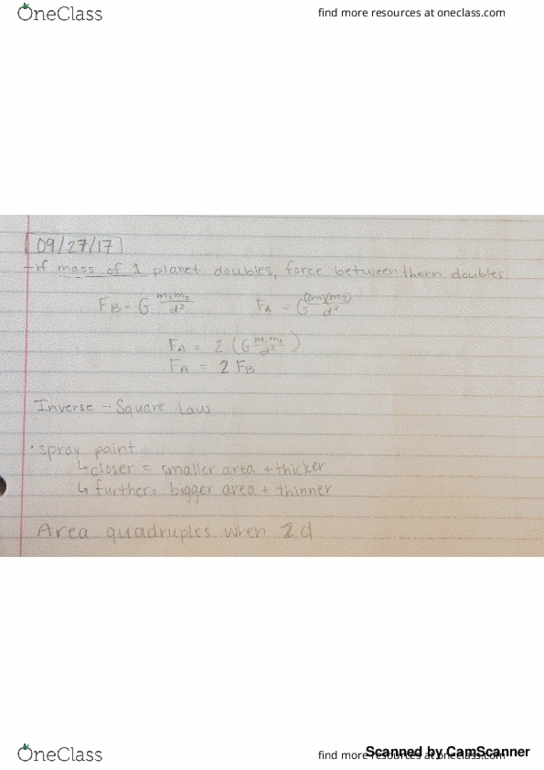 OneClass find more resources at oneclass.com
09/27/17
- if mass of 1 planet doubles, force between them doubles.
FB = G m₁m₂/d² FA = G (2m₁)(m₂)/d²
FA = 2 (G m₁m₂/d²)
FA = 2 FB
Inverse - Square Law
• spray paint
↳ closer = smaller area + thicker
↳ further = bigger area + thinner
Area quadruples when 2d
OneClass find more resources at oneclass.com
Scanned by CamScanner